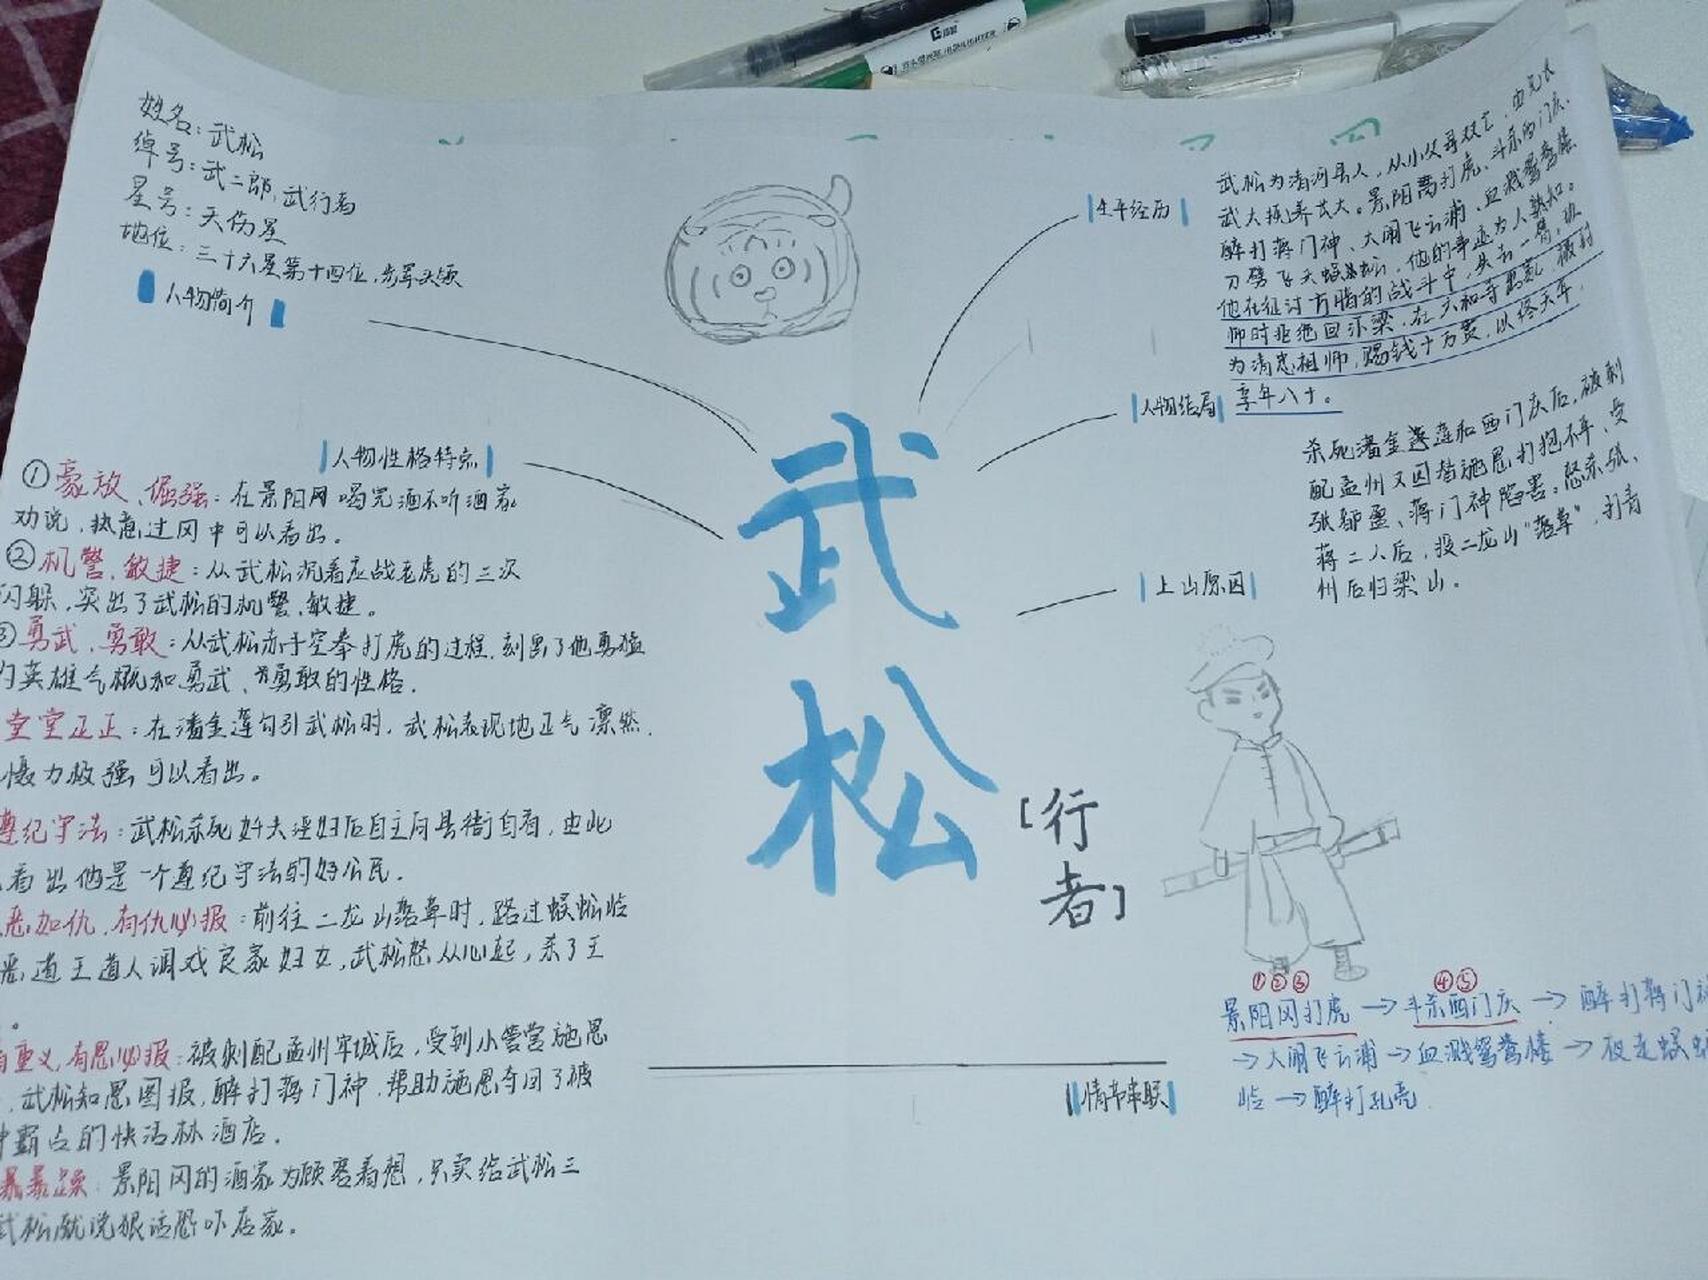 姓名：武松
绰号：武二郎，武行者
星号：天伤星
地位：三十六星第十四位，步军头领
人物简介
人物性格特点
①豪放、倔强：在景阳冈喝完酒不听酒家
劝说，执意过冈中可以看出。
②机警、敏捷：从武松沉着应战老虎的三次
闪躲，突出了武松的机警、敏捷。
③勇武、勇敢：从武松赤手空拳打虎的过程，刻画了他勇猛
的英雄气概和勇武、勇敢的性格。
堂堂正正：在潘金莲勾引武松时，武松表现地正气凛然，
慑力极强可以看出。
遵纪守法：武松杀死奸夫淫妇后自主向县衙自首，由此
看出他是一个遵纪守法的好公民。
恶如仇、有仇必报：前往二龙山落草时，路过蜈蚣岭
恶道王道人调戏良家妇女，武松怒从心起，杀了王
。
重义，有恩必报：被刺配孟州牢城后，受到小管营施恩
，武松知恩图报，醉打蒋门神，帮助施恩夺回了被
霸占的快活林酒店。
暴躁：景阳冈的酒家为顾客着想，只卖给武松三
武松就说狠话恐吓店家。
武
松
[行
者]
生平经历
武松为清河县人，从小父母双亡，由兄长
武大抚养长大。景阳冈打虎、斗杀西门庆、
醉打蒋门神、大闹飞云浦、血溅鸳鸯楼、
刀劈飞天蜈蚣，他的事迹为人熟知。
人物结局
他在征讨方腊的战斗中，失去一臂，班
师时拒绝回汴梁，在六和寺出家，被封
为清忠祖师，赐钱十万贯，以终天年，
享年八十。
上山原因
杀死潘金莲和西门庆后，被刺
配孟州又因替施恩打抱不平，受
张都监、蒋门神陷害；怒杀张、
蒋二人后，投二龙山“落草”，打青
州后归梁山。
①②③ ④⑤
景阳冈打虎→斗杀西门庆→醉打蒋门神
→大闹飞云浦→血溅鸳鸯楼→夜走蜈蚣
岭→醉打孔亮
情节串联